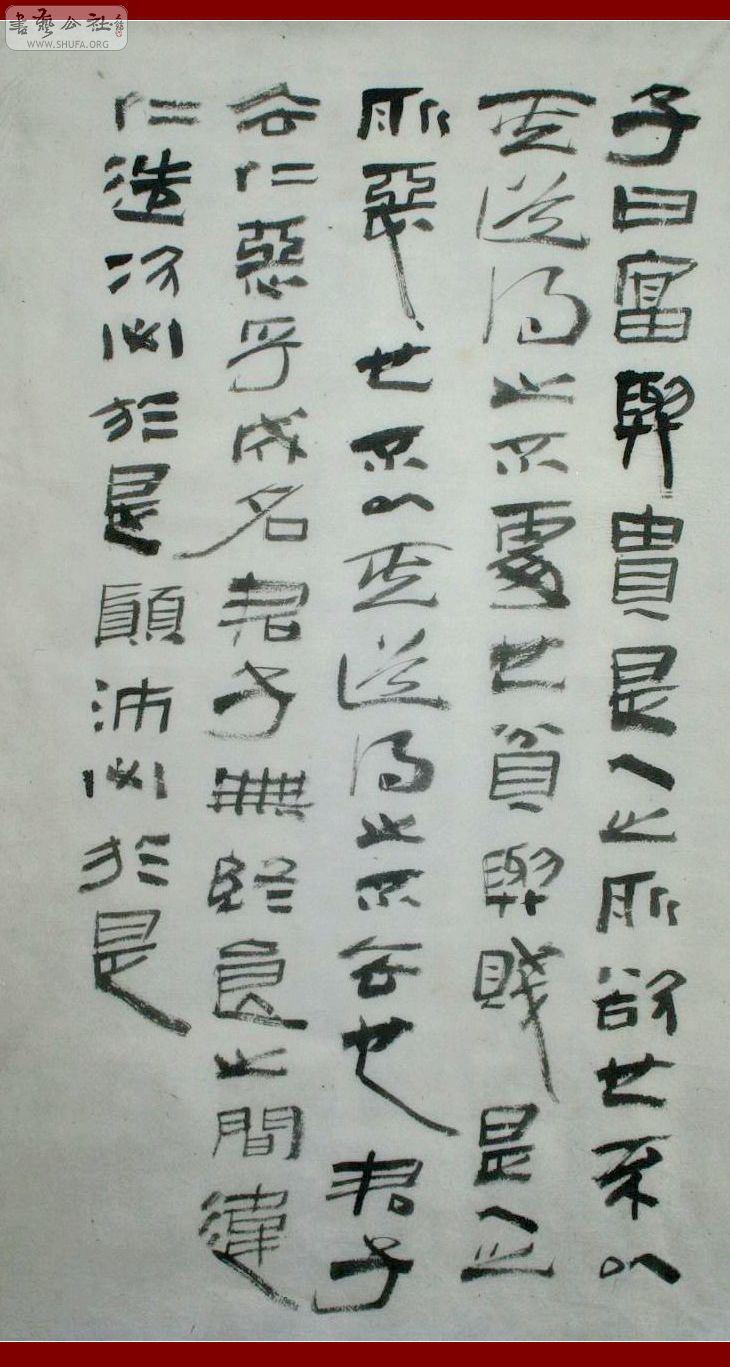 書藝公社
WWW.SHUFA.ORG
子曰富與貴是人之所欲也不以
其道得之不處也貧與賤是人之
所惡也不以其道得之不去也君子
去仁惡乎成名君子無終食之間違
仁造次必於是顛沛必於是